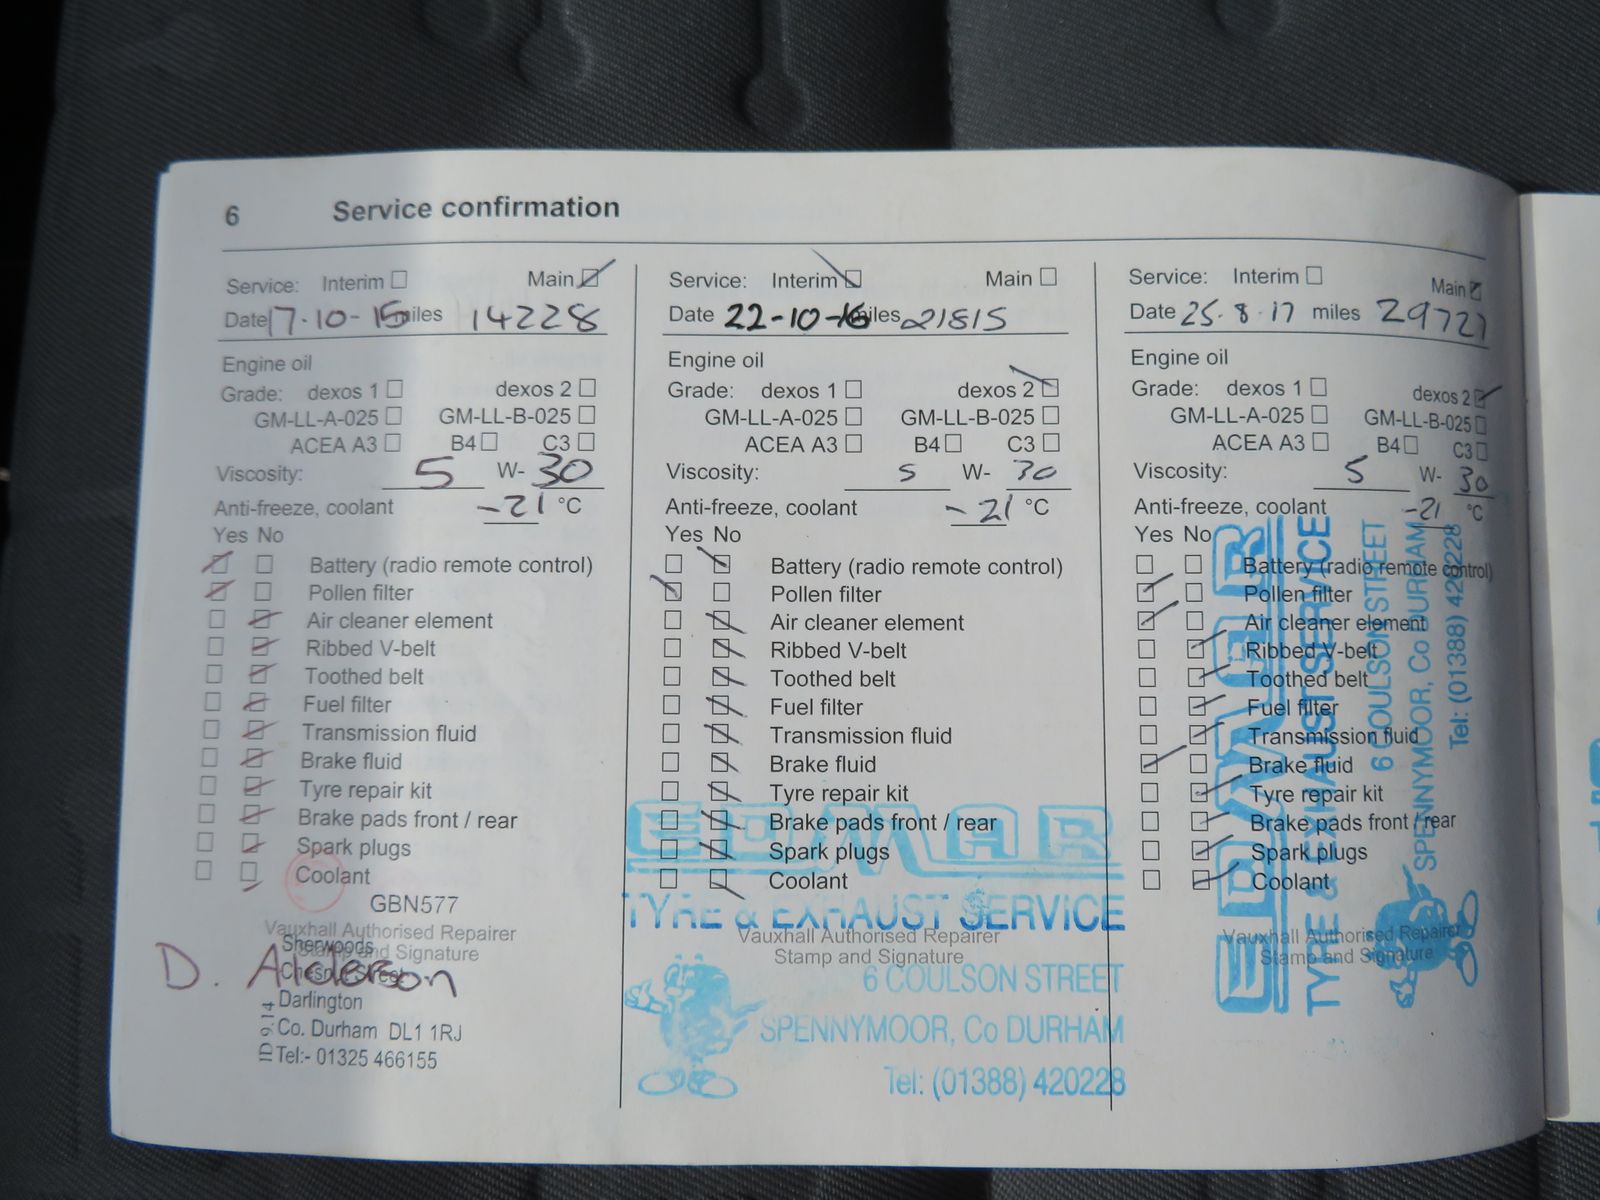 6 Service confirmation
Service: Interim Main
Date 17-10-15 miles 14228
Engine oil
Grade: dexos 1 dexos 2
GM-LL-A-025 GM-LL-B-025
ACEA A3 B4 C3
Viscosity: 5 W- 30
Anti-freeze, coolant -21 °C
Yes No
Battery (radio remote control)
Pollen filter
Air cleaner element
Ribbed V-belt
Toothed belt
Fuel filter
Transmission fluid
Brake fluid
Tyre repair kit
Brake pads front / rear
Spark plugs
Coolant
GBN577
Vauxhall Authorised Repairer
Stamp and Signature
Sherwoods
Chesnut Street
D. Alderson
Darlington
Co. Durham DL1 1RJ
Tel:- 01325 466155
Service: Interim Main
Date 22-10-16 miles 21815
Engine oil
Grade: dexos 1 dexos 2
GM-LL-A-025 GM-LL-B-025
ACEA A3 B4 C3
Viscosity: 5 W- 30
Anti-freeze, coolant -21 °C
Yes No
Battery (radio remote control)
Pollen filter
Air cleaner element
Ribbed V-belt
Toothed belt
Fuel filter
Transmission fluid
Brake fluid
Tyre repair kit
Brake pads front / rear
Spark plugs
Coolant
EDMAR
TYRE & EXHAUST SERVICE
Vauxhall Authorised Repairer
Stamp and Signature
6 COULSON STREET
SPENNYMOOR, Co DURHAM
Tel: (01388) 420228
Service: Interim Main
Date 25.8.17 miles 29727
Engine oil
Grade: dexos 1 dexos 2
GM-LL-A-025 GM-LL-B-025
ACEA A3 B4 C3
Viscosity: 5 W- 30
Anti-freeze, coolant -21 °C
Yes No
Battery (radio remote control)
Pollen filter
Air cleaner element
Ribbed V-belt
Toothed belt
Fuel filter
Transmission fluid
Brake fluid
Tyre repair kit
Brake pads front / rear
Spark plugs
Coolant
Vauxhall Authorised Repairer
Stamp and Signature
EDMAR
TYRE & EXHAUST SERVICE
6 COULSON STREET
SPENNYMOOR, Co DURHAM
Tel: (01388) 420228